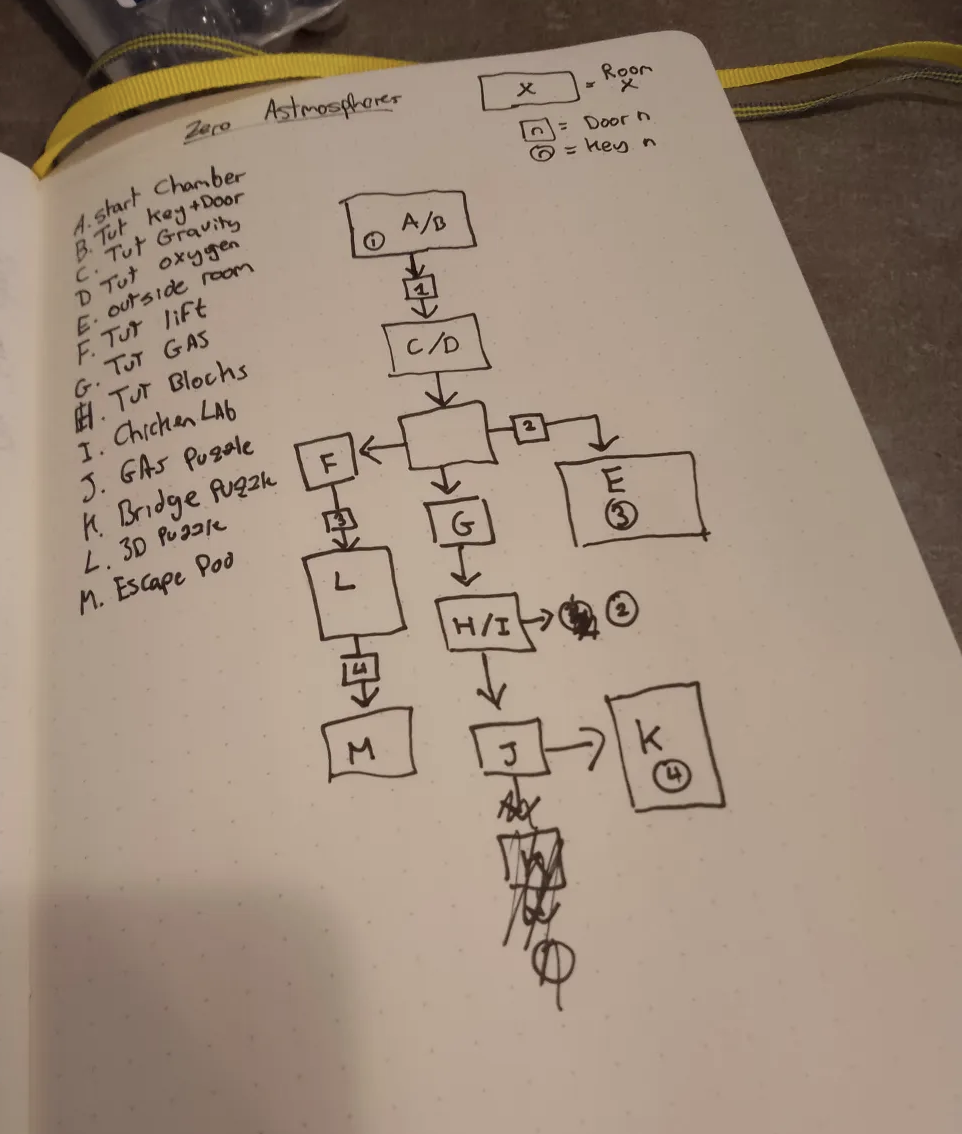 Zero Astmospheres
X = Room X
n = Door n
n = Key n
A. Start Chamber
B. Tut Key+Door
C. Tut Gravity
D Tut oxygen
E. outside room
F. Tut lift
G. Tut GAS
H. Tut Blocks
I. Chicken LAb
J. GAs Puzzle
K. Bridge Puzzle
L. 3D Puzzle
M. Escape Pod
A/B
1
1
C/D
2
F
E
3
3
G
L
H/I
2
4
M
J
K
4